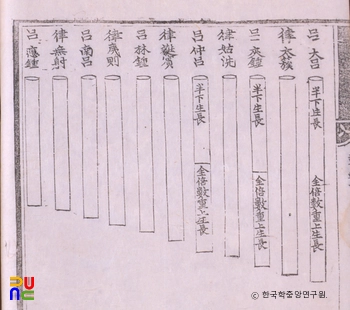 呂 大呂
半下生長
全倍數重上生長
律太簇
呂夾鍾
半下生長
全倍數重上生長
律姑洗
呂仲呂
半下生長
全倍數重上生長
律蕤賓
呂林鍾
律夷則
呂南呂
律無射
呂應鍾
RUNE
© 한국학중앙연구원